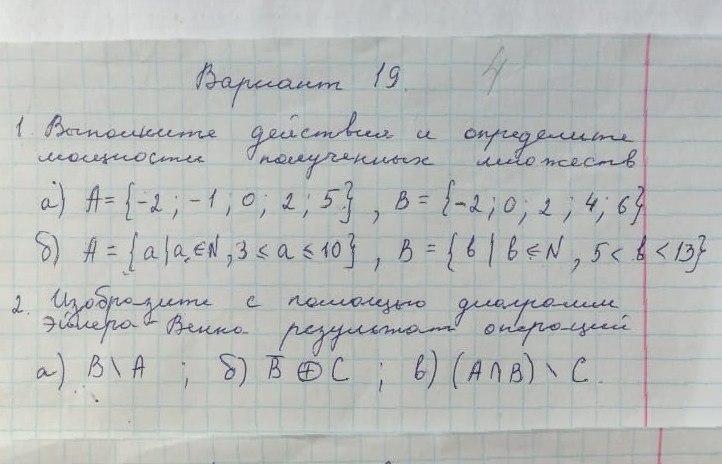 Вариант 19.
4
1. Выполните действия и определите
мощности полученных множеств
а) A = {-2; -1; 0; 2; 5}, B = {-2; 0; 2; 4; 6}
б) A = {a | a ∈ N, 3 < a ≤ 10}, B = {b | b ∈ N, 5 < b < 13}
2. Изобразите с помощью диаграмм
Эйлера-Венна результат операций
а) B \ A ; б) B̅ ⊕ C ; в) (A ∩ B) \ C.